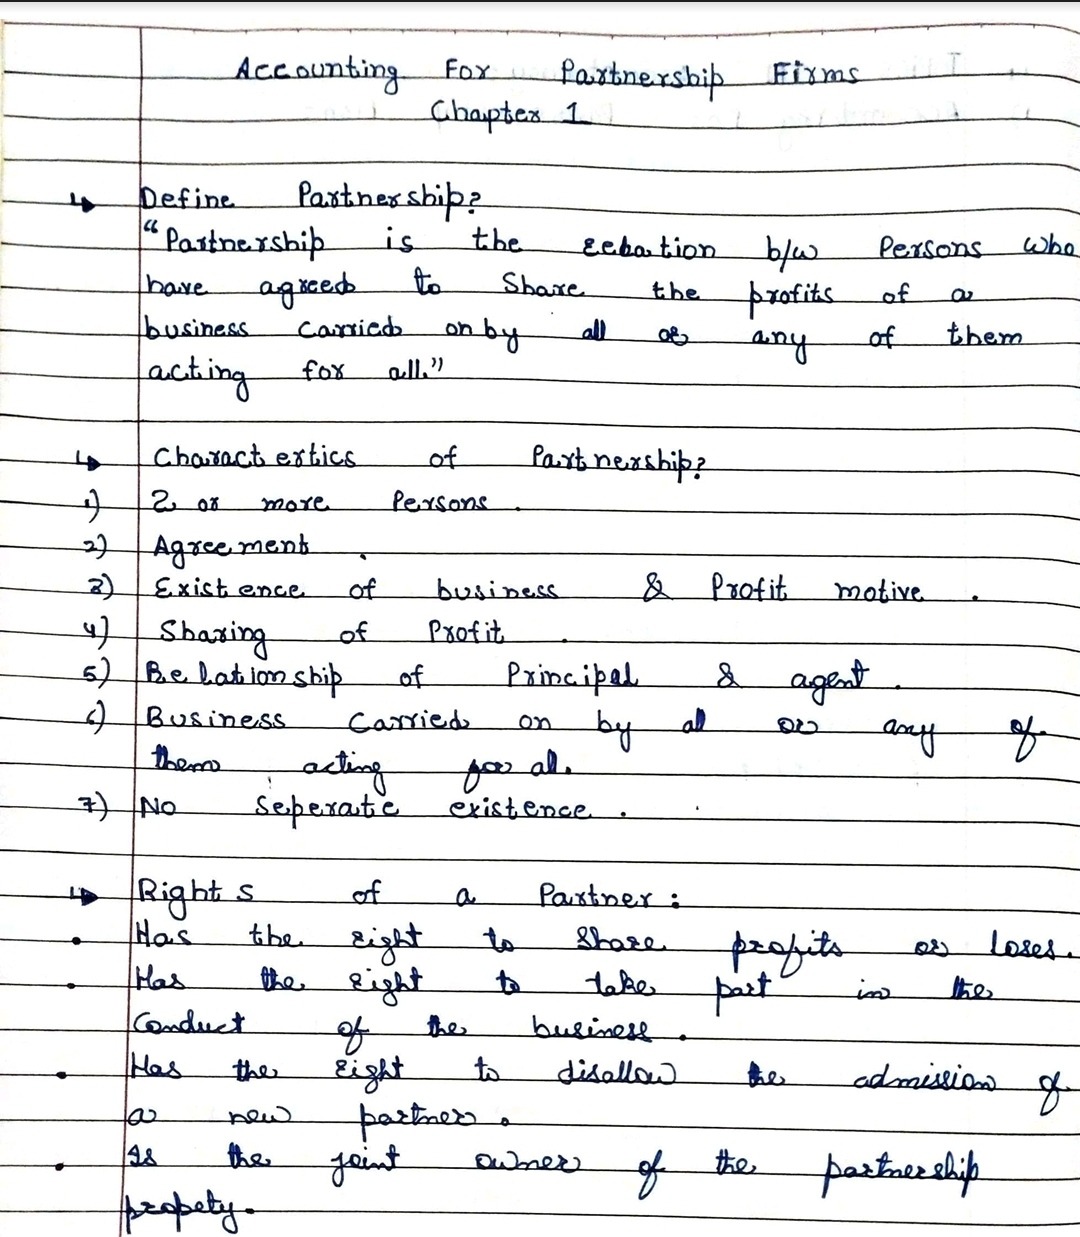 Accounting For Partnership Firms
Chapter 1
Define Partnership?
"Partnership is the relation b/w Persons who
have agreed to Share the profits of a
business carried on by all or any of them
acting for all."
Charactertics of Partnership?
1) 2 or more Persons.
2) Agreement.
3) Existence of business & Profit motive.
4) Sharing of Profit.
5) Relationship of Principal & agent.
6) Business Carried on by all or any of
them acting for all.
7) No Seperate existence.
Rights of a Partner:
• Has the right to share profits or loses.
• Has the right to take part in the
Conduct of the business.
• Has the right to disallow the admission of
a new partner.
• Is the joint owner of the partnership
propety.